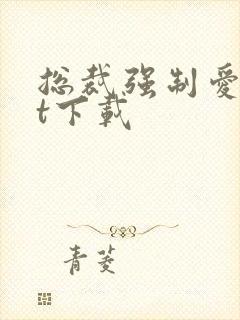 总裁强制爱
t下载
青菱